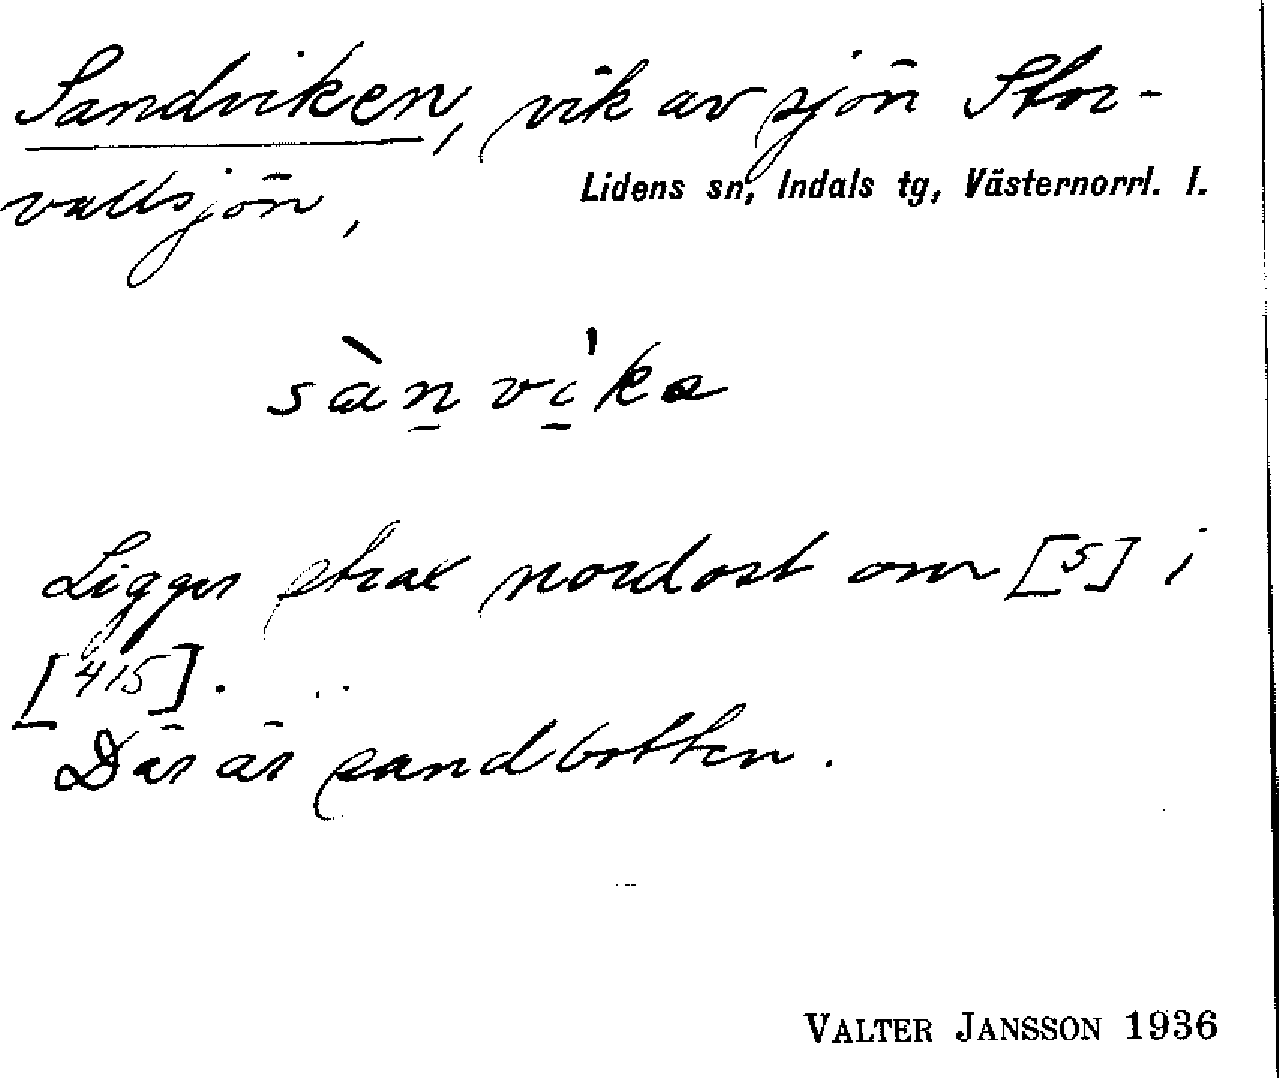 Sandviken, vik av sjön Stor-
vallsjön,
Lidens sn, Indals tg, Västernorrl. l.
sàn̠ vi̠ˈka
Ligger strax nordost om [5] i
[415].
Där är sandbotten.
VALTER JANSSON 1936